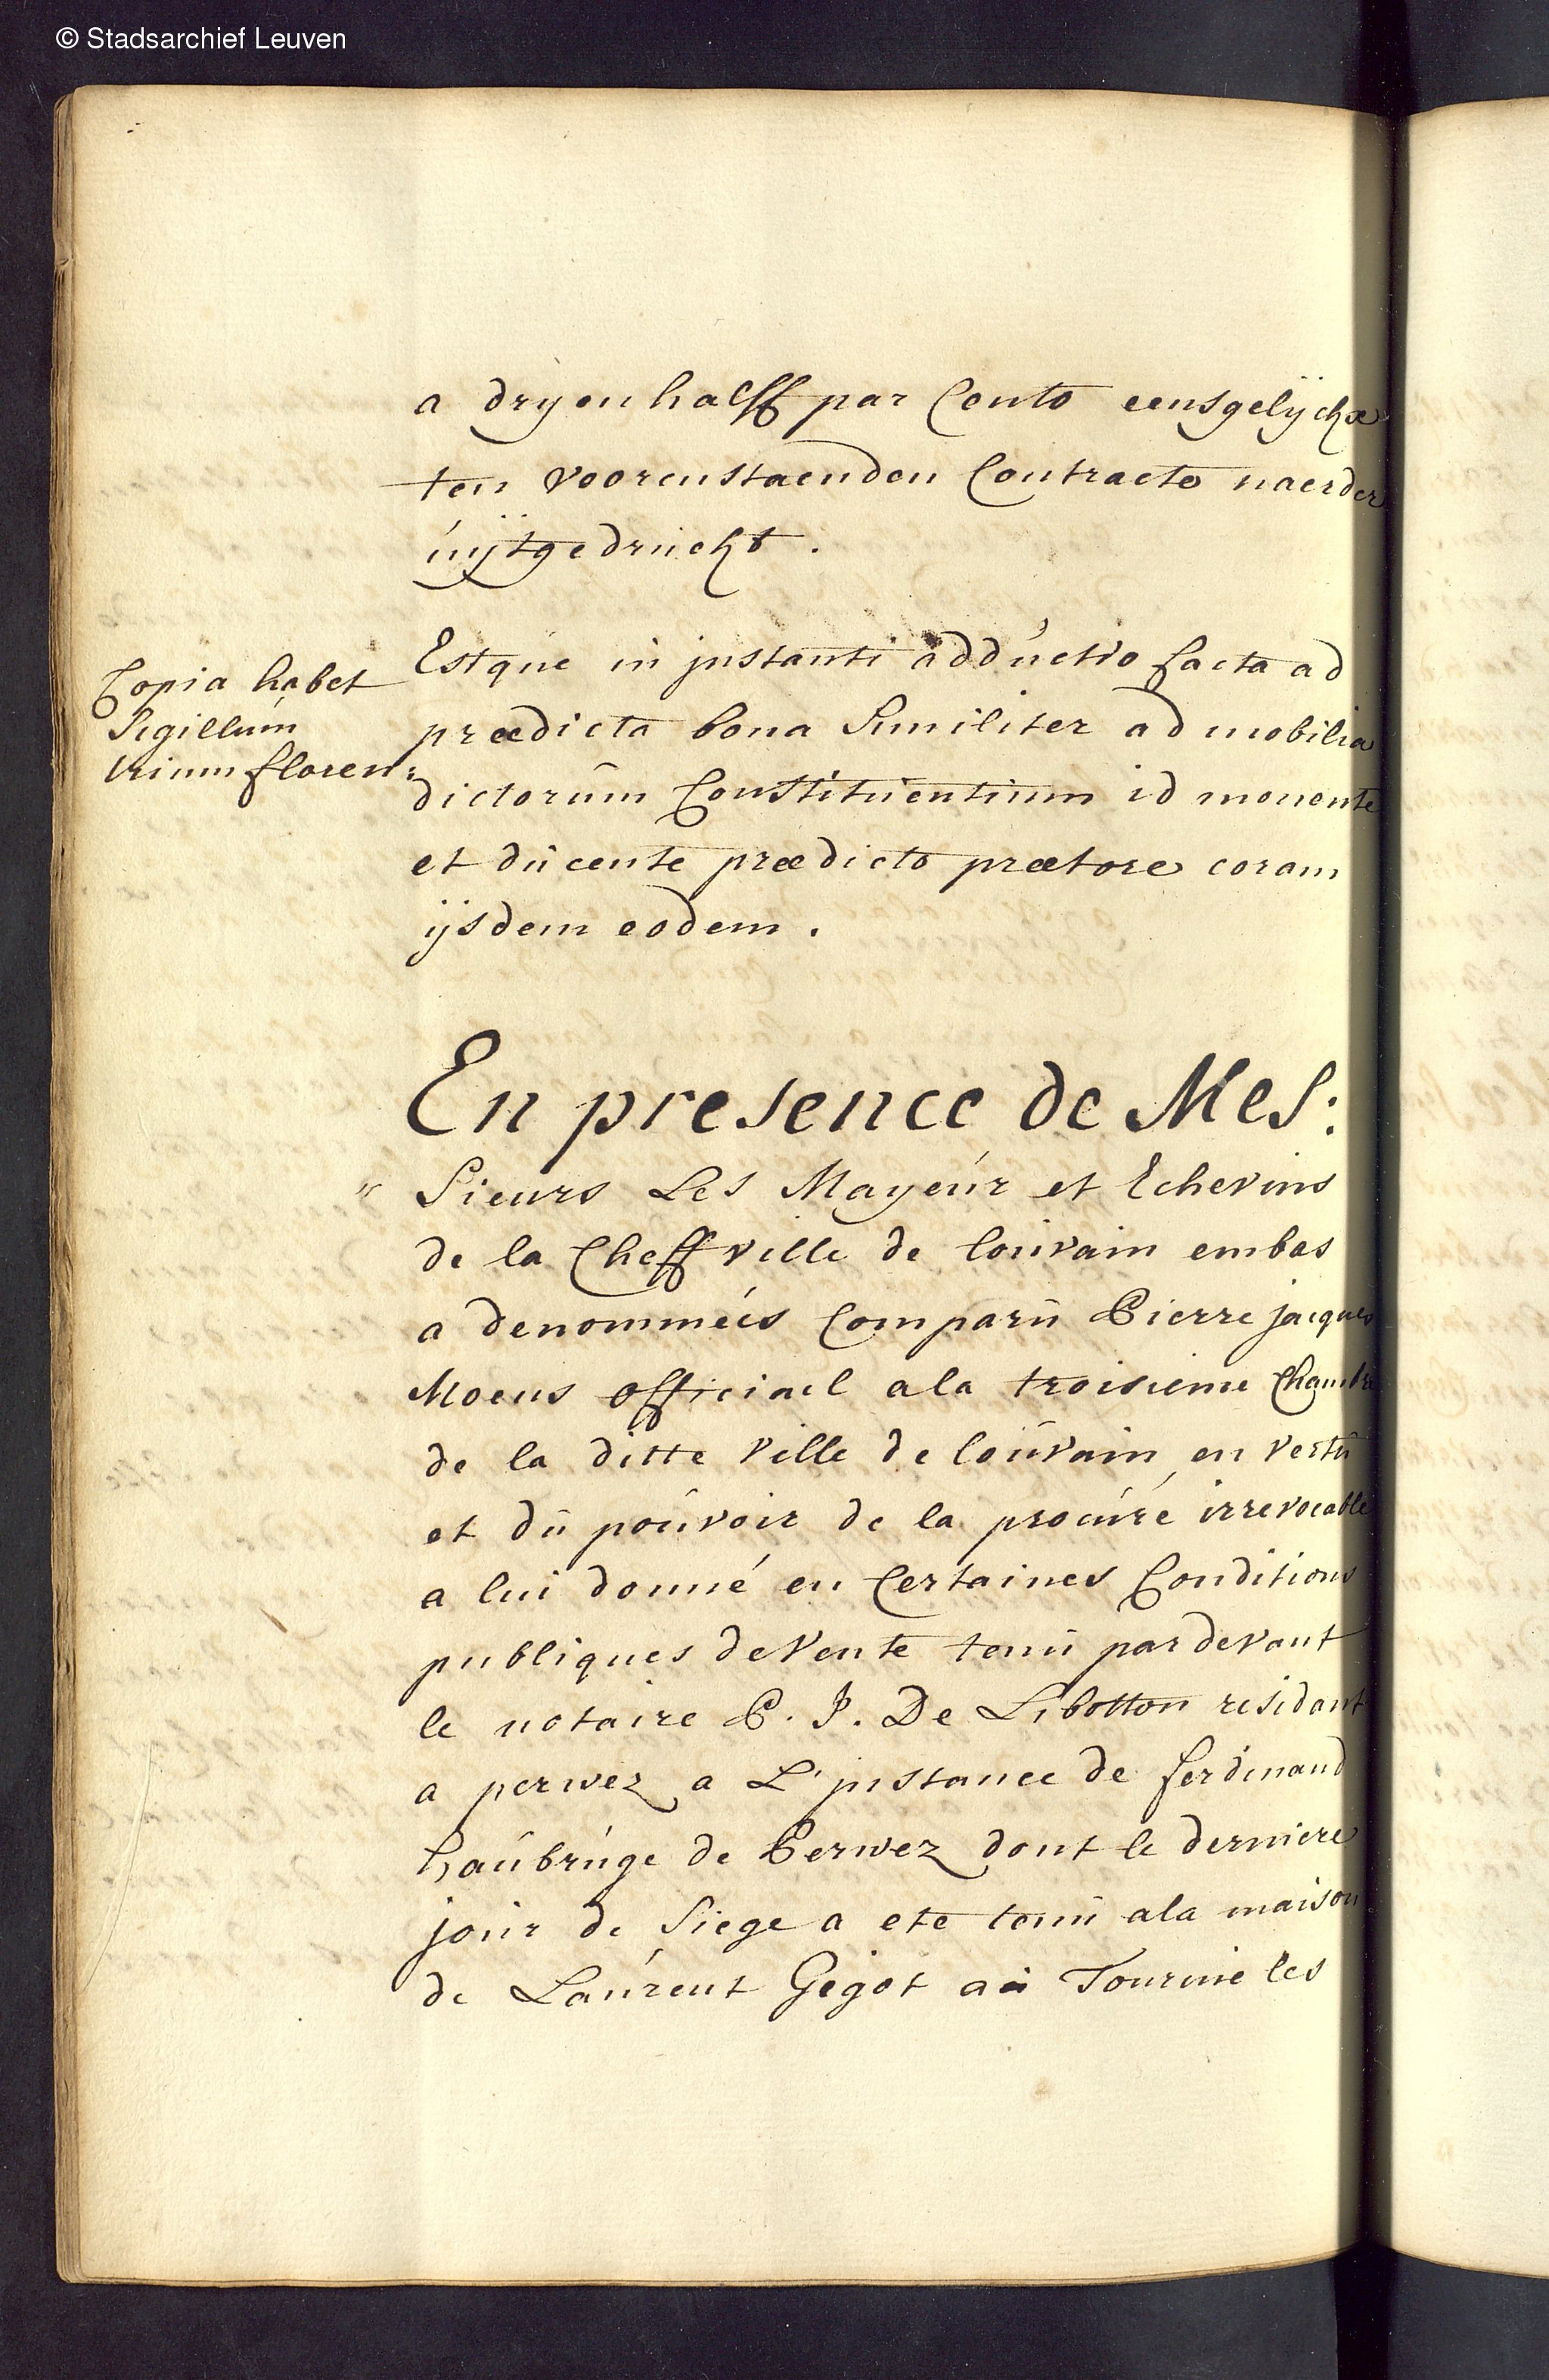 © Stadsarchief Leuven
a dryenhalff par Cento eensgelÿckx
ten voorenstaenden Contracte naerder
uÿtgedruckt.
Copia habet
Sigillum
trium floren:
Estque in jnstanti adductio facta ad
prædicta bona Similiter ad mobilia
dictorum Constituentium id monente
et ducente prædicto prætore coram
ijsdem eodem.
En presence de Mes:
" Sieurs Les Mayeur et Echevins
de la Cheffville de louvain embas
a denommeés Comparu Pierre jacques
Moens officiael ala troisieme Chambre
de la ditte Ville de louvain en vertu
et du pouvoir de la procuré irrevocable
a lui donné en Certaines Conditions
publiques deVente tenu pardevant
le notaire P. J. De Libotton residant
a perwez a L'jnstance de ferdinand
haubruge de Perwez dont le derniere
jour de Siege a ete tenu ala maison
de Laurent Gegot aa Tourinie les